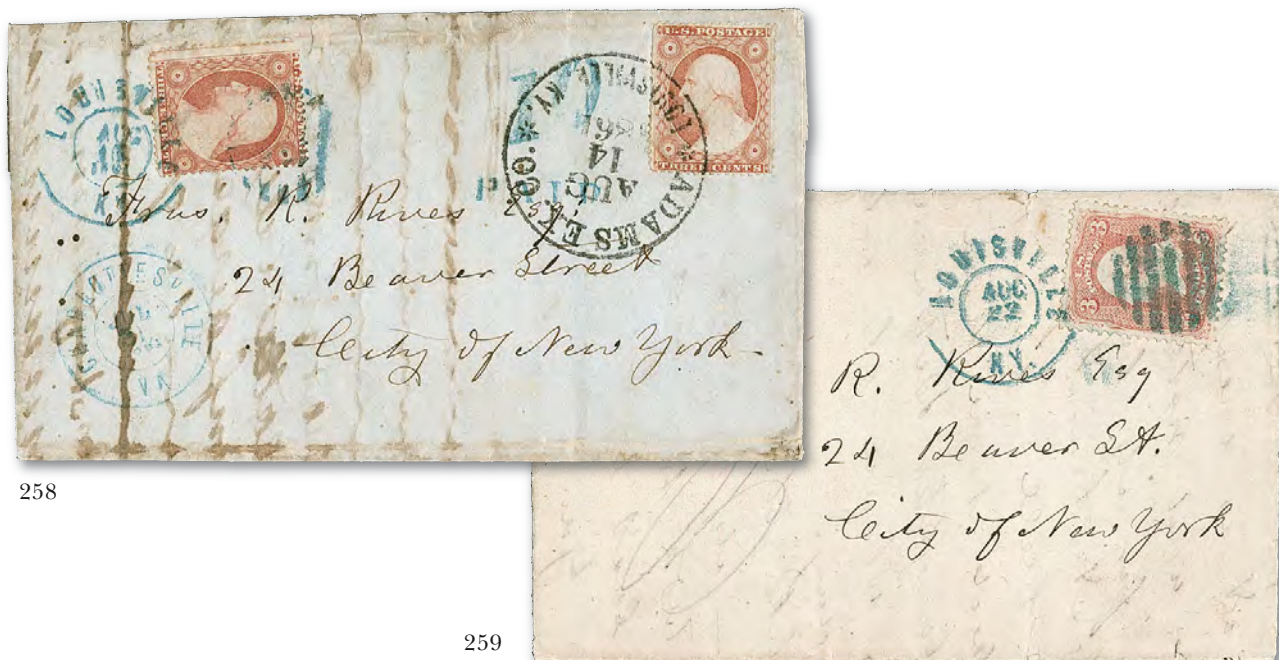 LOUISVILLE
AUG
KY.
U.S. POSTAGE
THREE CENTS
ADAMS EX. CO. * LOUISVILLE KY. *
AUG
14
1861
PAID
CHARLOTTESVILLE
VA
R. Rives Esq
24 Beaver Street
City of New York
258
LOUISVILLE
AUG
22
KY.
3 3
R. Rives Esq
24 Beaver St.
City of New York
259